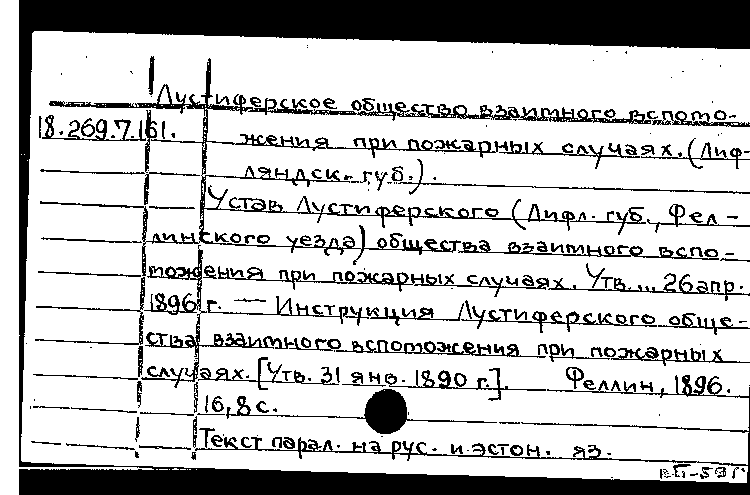 Лустиферское общество взаимного вспомо-
18.269.7.161. жения при пожарных случаях. (Лиф-
ляндск. губ.).
Устав Лустиферского (Лифл. губ., Фел-
линского уезда) общества взаимного вспо-
можения при пожарных случаях. Утв... 26 апр.
1896 г. — Инструкция Лустиферского обще-
ства взаимного вспоможения при пожарных
случаях. [Утв. 31 янв. 1890 г.]. Феллин, 1896.
16, 8 с.
Текст парал. на рус. и эстон. яз.